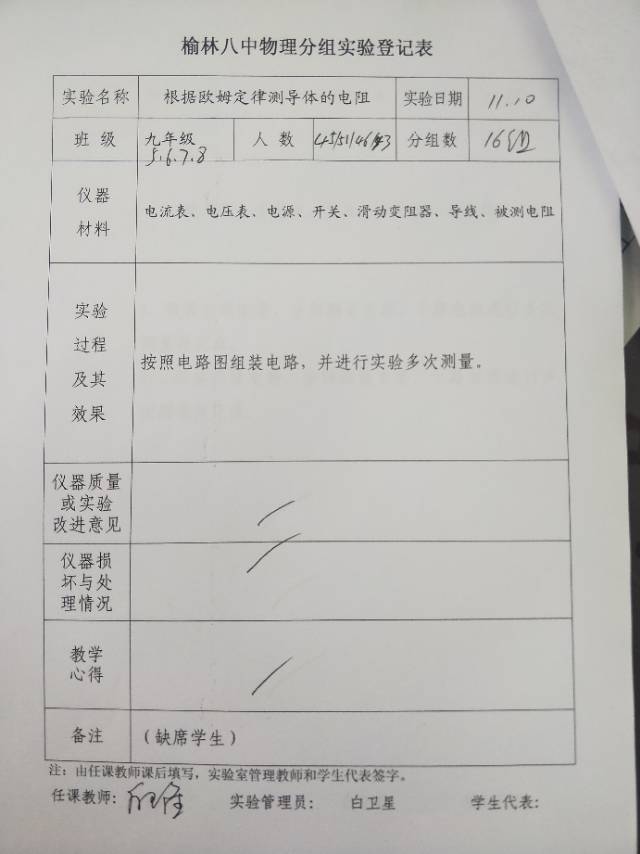 榆林八中物理分组实验登记表
实验名称 根据欧姆定律测导体的电阻 实验日期 11.10
班 级 九年级 人 数 45/51/46/43 分组数 16组
5.6.7.8
仪器
材料
电流表、电压表、电源、开关、滑动变阻器、导线、被测电阻
实验
过程
及其
效果
按照电路图组装电路，并进行实验多次测量。
仪器质量
或实验
改进意见
仪器损
坏与处
理情况
教学
心得
备注 (缺席学生)
注：由任课教师课后填写，实验室管理教师和学生代表签字。
任课教师： 实验管理员： 白卫星 学生代表: